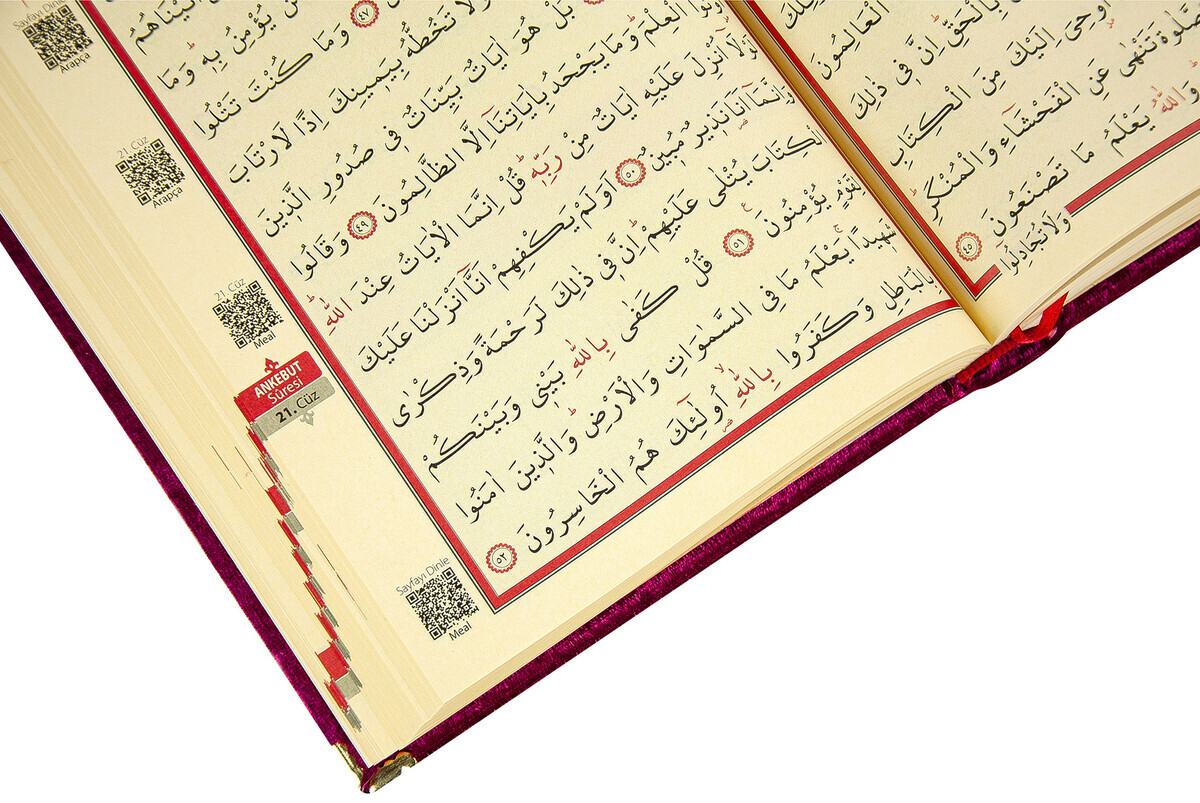 الْعَالِمُونَ
بِالْحَقِّ اِنَّ فٖي ذٰلِكَ
اُوحِيَ اِلَيْكَ مِنَ الْكِتَابِ
تَنْهٰى عَنِ الْفَحْشَٓاءِ وَالْمُنْكَرِ
وَاللّٰهُ يَعْلَمُ مَا تَصْنَعُونَ ٤٥
وَلَا تُجَادِلُوا
اٰتَيْنَاهُمْ
يُؤْمِنُ بِهٖ وَمَا
٤٧ وَمَا كُنْتَ تَتْلُوا
وَلَا تَخُطُّهُ بِيَمٖينِكَ اِذًا لَارْتَابَ
بَلْ هُوَ اٰيَاتٌ بَيِّنَاتٌ فٖي صُدُورِ الَّذٖينَ
الْعِلْمَ وَمَا يَجْحَدُ بِاٰيَاتِنَٓا اِلَّا الظَّالِمُونَ ٤٩ وَقَالُوا
لَوْلَٓا اُنْزِلَ عَلَيْهِ اٰيَاتٌ مِنْ رَبِّهٖ قُلْ اِنَّمَا الْاٰيَاتُ عِنْدَ اللّٰهِ
وَاِنَّمَٓا اَنَا نَذٖيرٌ مُبٖينٌ ٥٠ اَوَلَمْ يَكْفِهِمْ اَنَّٓا اَنْزَلْنَا عَلَيْكَ
الْكِتَابَ يُتْلٰى عَلَيْهِمْ اِنَّ فٖي ذٰلِكَ لَرَحْمَةً وَذِكْرٰى
لِقَوْمٍ يُؤْمِنُونَ ٥١ قُلْ كَفٰى بِاللّٰهِ بَيْنٖي وَبَيْنَكُمْ
شَهٖيدًا يَعْلَمُ مَا فِي السَّمٰوَاتِ وَالْاَرْضِ وَالَّذٖينَ اٰمَنُوا
بِالْبَاطِلِ وَكَفَرُوا بِاللّٰهِ اُو۬لٰٓئِكَ هُمُ الْخَاسِرُونَ ٥٢
Sayfayı Dinle
Arapça
21. Cüz
Arapça
21. Cüz
Meal
ANKEBUT
Sûresi
21. Cüz
Sayfayı Dinle
Meal